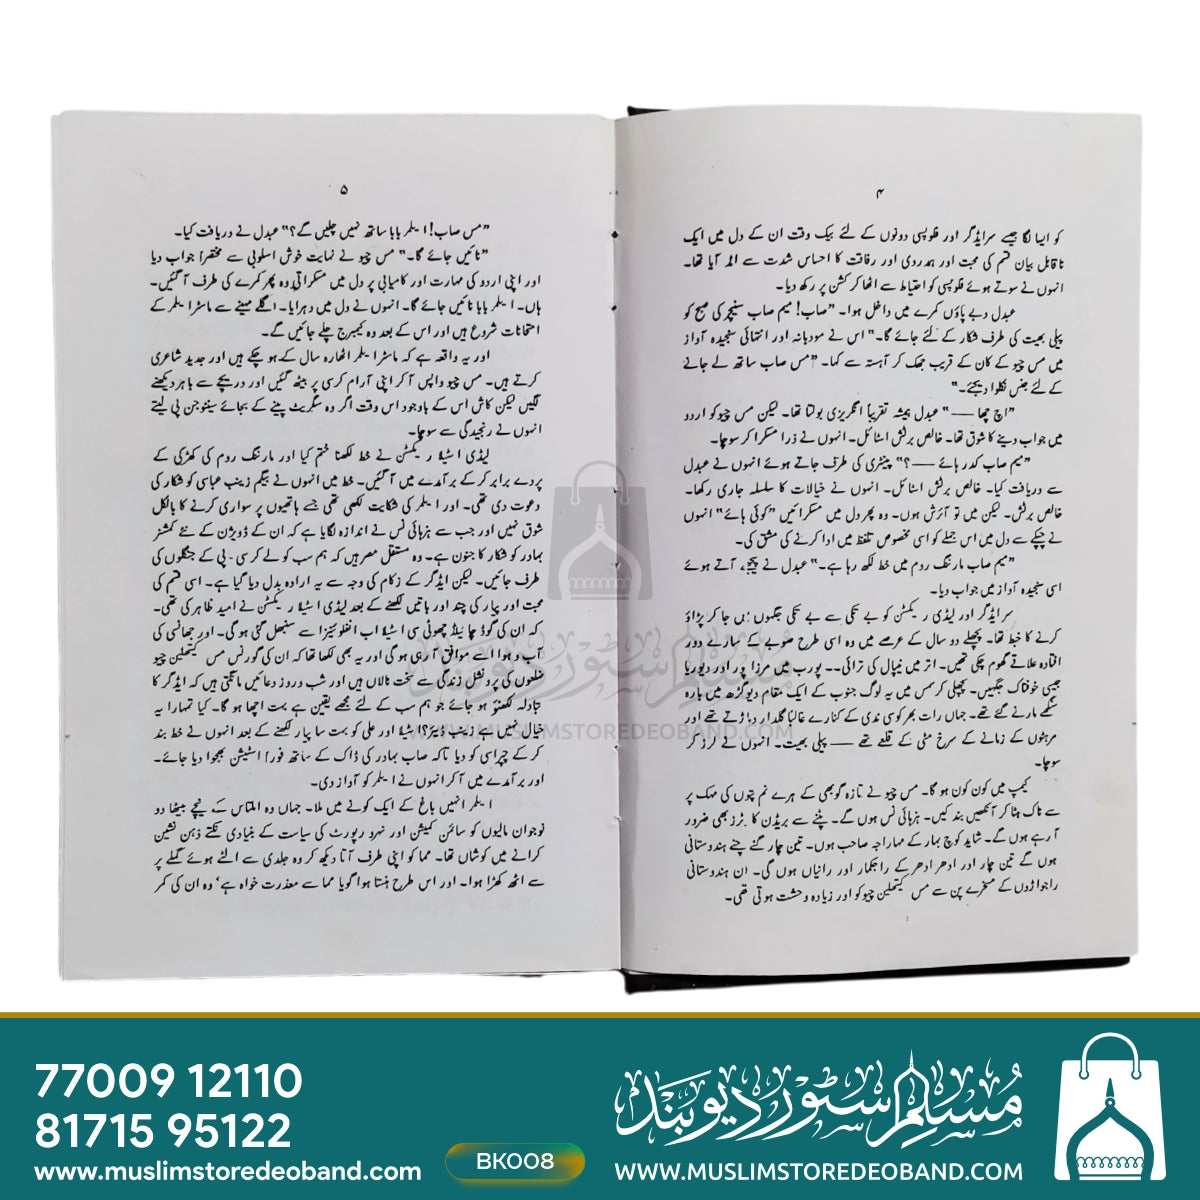 ۴
کو ایسا لگا جیسے سرایڈگر اور فلوپسی دونوں کے لئے بیک وقت ان کے دل میں ایک
ناقابل بیان قسم کی محبت اور ہمدردی اور رفاقت کا احساس شدت سے امڈ آیا تھا۔
انہوں نے سوتے ہوئے فلوپسی کو احتیاط سے اٹھا کر کشن پر رکھ دیا۔
عبدل دبے پاؤں کمرے میں داخل ہوا۔ "صاب! میم صاب سنیچر کی صبح کو
پیلی بھیت کی طرف شکار کے لئے جائے گا۔" اس نے مودبانہ اور انتہائی سنجیدہ آواز
میں مس چیو کے کان کے قریب جھک کر آہستہ سے کہا۔ "مس صاب ساتھ لے جانے
کے لئے جنس نکلوا دیجئے۔"
"اچ چھا —— " عبدل ہمیشہ تقریباً انگریزی بولتا تھا۔ لیکن مس چیو کو اردو
میں جواب دینے کا شوق تھا۔ خالص برٹش اسٹائل۔ انہوں نے ذرا مسکرا کر سوچا۔
"میم صاب کدر ہائے ——؟" پینٹری کی طرف جاتے ہوئے انہوں نے عبدل
سے دریافت کیا۔ خالص برٹش اسٹائل۔ انہوں نے خیالات کا سلسلہ جاری رکھا۔
خالص برٹش۔ لیکن میں تو آئرش ہوں۔ وہ پھر دل میں مسکرائیں "کوئی ہائے" انہوں
نے چپکے سے دل میں اس جملے کو اسی مخصوص تلفظ میں ادا کرنے کی مشق کی۔
"میم صاب مارننگ روم میں خط لکھ رہا ہے۔" عبدل نے پیچھے آتے ہوئے
اسی سنجیدہ آواز میں جواب دیا۔
سرایڈگر اور لیڈی ریکسٹن کو بے تکی سے بے تکی جگہوں میں جا کر پڑاؤ
کرنے کا خبط تھا۔ پچھلے دو سال کے عرصے میں وہ اسی طرح صوبے کے سارے دور
افتادہ علاقے گھوم چکی تھیں۔ اتر میں نیپال کی ترائی۔۔ پورب میں مرزا پور اور دیوریا
جیسی خوفناک جگہیں۔ پچھلی کرسمس میں یہ لوگ جنوب کے ایک مقام دیوگڑھ میں بارہ
سنگھے مارنے گئے تھے۔ جہاں رات بھر کوسی ندی کے کنارے غالباً گلدار دہاڑتے تھے اور
مرہٹوں کے زمانے کے سرخ مٹی کے قلعے تھے —— پیلی بھیت۔ انہوں نے لرز کر
سوچا۔
کیمپ میں کون کون ہو گا۔ مس چیو نے تازہ گوبھی کے ہرے نم پتوں کی مہک پر
سے ناک ہٹا کر آنکھیں بند کیں۔ ہزہائی نس ہوں گے۔ پٹنے سے بریڈن کا برز بھی ضرور
آ رہے ہوں گے۔ شاید کوچ بہار کے مہاراجہ صاحب ہوں۔ تین چار گنے چنے ہندوستانی
ہوں گے تین چار اور ادھر ادھر کے راجکمار اور رانیاں ہوں گی۔ ان ہندوستانی
راجواڑوں کے مسخرے پن سے مس کیتھلین چیو کو اور زیادہ وحشت ہوتی تھی۔
۵
"مس صاب! ایلمر بابا ساتھ نہیں چلیں گے؟" عبدل نے دریافت کیا۔
"نائیں جائے گا۔" مس چیو نے نہایت خوش اسلوبی سے مختصراً جواب دیا
اور اپنی اردو کی مہارت اور کامیابی پر دل میں مسکراتی وہ پھر کمرے کی طرف آ گئیں۔
ہاں۔ ایلمر بابا نائیں جائے گا۔ انہوں نے دل میں دہرایا۔ اگلے مہینے سے ماسٹر ایلمر کے
امتحانات شروع ہیں اور اس کے بعد وہ کیمبرج چلے جائیں گے۔
اور یہ واقعہ ہے کہ ماسٹر ایلمر اٹھارہ سال کے ہو چکے ہیں اور جدید شاعری
کرتے ہیں۔ مس چیو واپس آ کر اپنی آرام کرسی پر بیٹھ گئیں اور دریچے سے باہر دیکھنے
لگیں لیکن کاش اس کے باوجود اس وقت اگر وہ سگریٹ پینے کے بجائے سینٹوجن پی لیتے
انہوں نے رنجیدگی سے سوچا۔
لیڈی اسٹیلا ریکسٹن نے خط لکھنا ختم کیا اور مارننگ روم کی کھڑکی کے
پردے برابر کر کے برآمدے میں آ گئیں۔ خط میں انہوں نے بیگم زینب عباسی کو شکار کی
دعوت دی تھی۔ اور ایلمر کی شکایت لکھی تھی جسے ہاتھیوں پر سواری کرنے کا بالکل
شوق نہیں اور جب سے ہزہائی نس نے اندازہ لگایا ہے کہ ان کے ڈویژن کے نئے کمشنر
بہادر کو شکار کا جنون ہے۔ وہ مستقل مصر ہیں کہ ہم سب کو لے کر سی۔پی کے جنگلوں کی
طرف جائیں۔ لیکن ایڈگر کے زکام کی وجہ سے یہ ارادہ بدل دیا گیا ہے۔ اسی قسم کی
محبت اور پیار کی چند اور باتیں لکھنے کے بعد لیڈی اسٹیلا ریکسٹن نے امید ظاہر کی تھی۔
کہ ان کی گوڈ چائیلڈ چھوٹی سی اسٹیلا اب انفلوئنزا سے سنبھل گئی ہو گی۔ اور جھانسی کی
آب و ہوا اسے موافق آ رہی ہو گی اور یہ بھی لکھا تھا کہ ان کی گورنس مس کیتھلین چیو
ضلعوں کی پرونشل زندگی سے سخت نالاں ہیں اور شب و روز دعائیں مانگتی ہیں کہ ایڈگر کا
تبادلہ لکھنؤ ہو جائے جو ہم سب کے لئے مجھے یقین ہے بہت اچھا ہو گا۔ کیا تمہارا یہ
خیال نہیں ہے زینب ڈیئر؟ اسٹیلا اور علی کو بہت سا پیار لکھنے کے بعد انہوں نے خط بند
کر کے چپراسی کو دیا تاکہ صاب بہادر کی ڈاک کے ساتھ فوراً اسٹیشن بھجوا دیا جائے۔
اور برآمدے میں آ کر انہوں نے ایلمر کو آواز دی۔
ایلمر انہیں باغ کے ایک کونے میں ملا۔ جہاں وہ املتاس کے نیچے بیٹھا دو
نوجوان مالیوں کو سائمن کمیشن اور نہرو رپورٹ کی سیاست کے بنیادی نکتے ذہن نشین
کرانے میں کوشاں تھا۔ مما کو اپنی طرف آتا دیکھ کر وہ جلدی سے الٹے ہوئے گملے پر
سے اٹھ کھڑا ہوا۔ اور اس طرح ہنستا ہوا گویا مما سے معذرت خواہ ہے' وہ ان کی کمر
مسلم سٹور دیوبند
WWW.MUSLIMSTOREDEOBAND.COM
77009 12110
81715 95122
www.muslimstoredeoband.com
BK008
مسلم سٹور دیوبند
WWW.MUSLIMSTOREDEOBAND.COM